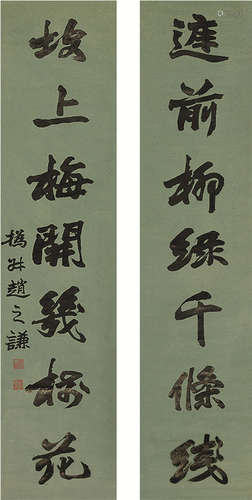 前柳綠千條綫
坡上梅開幾樹花
撝叔趙之謙